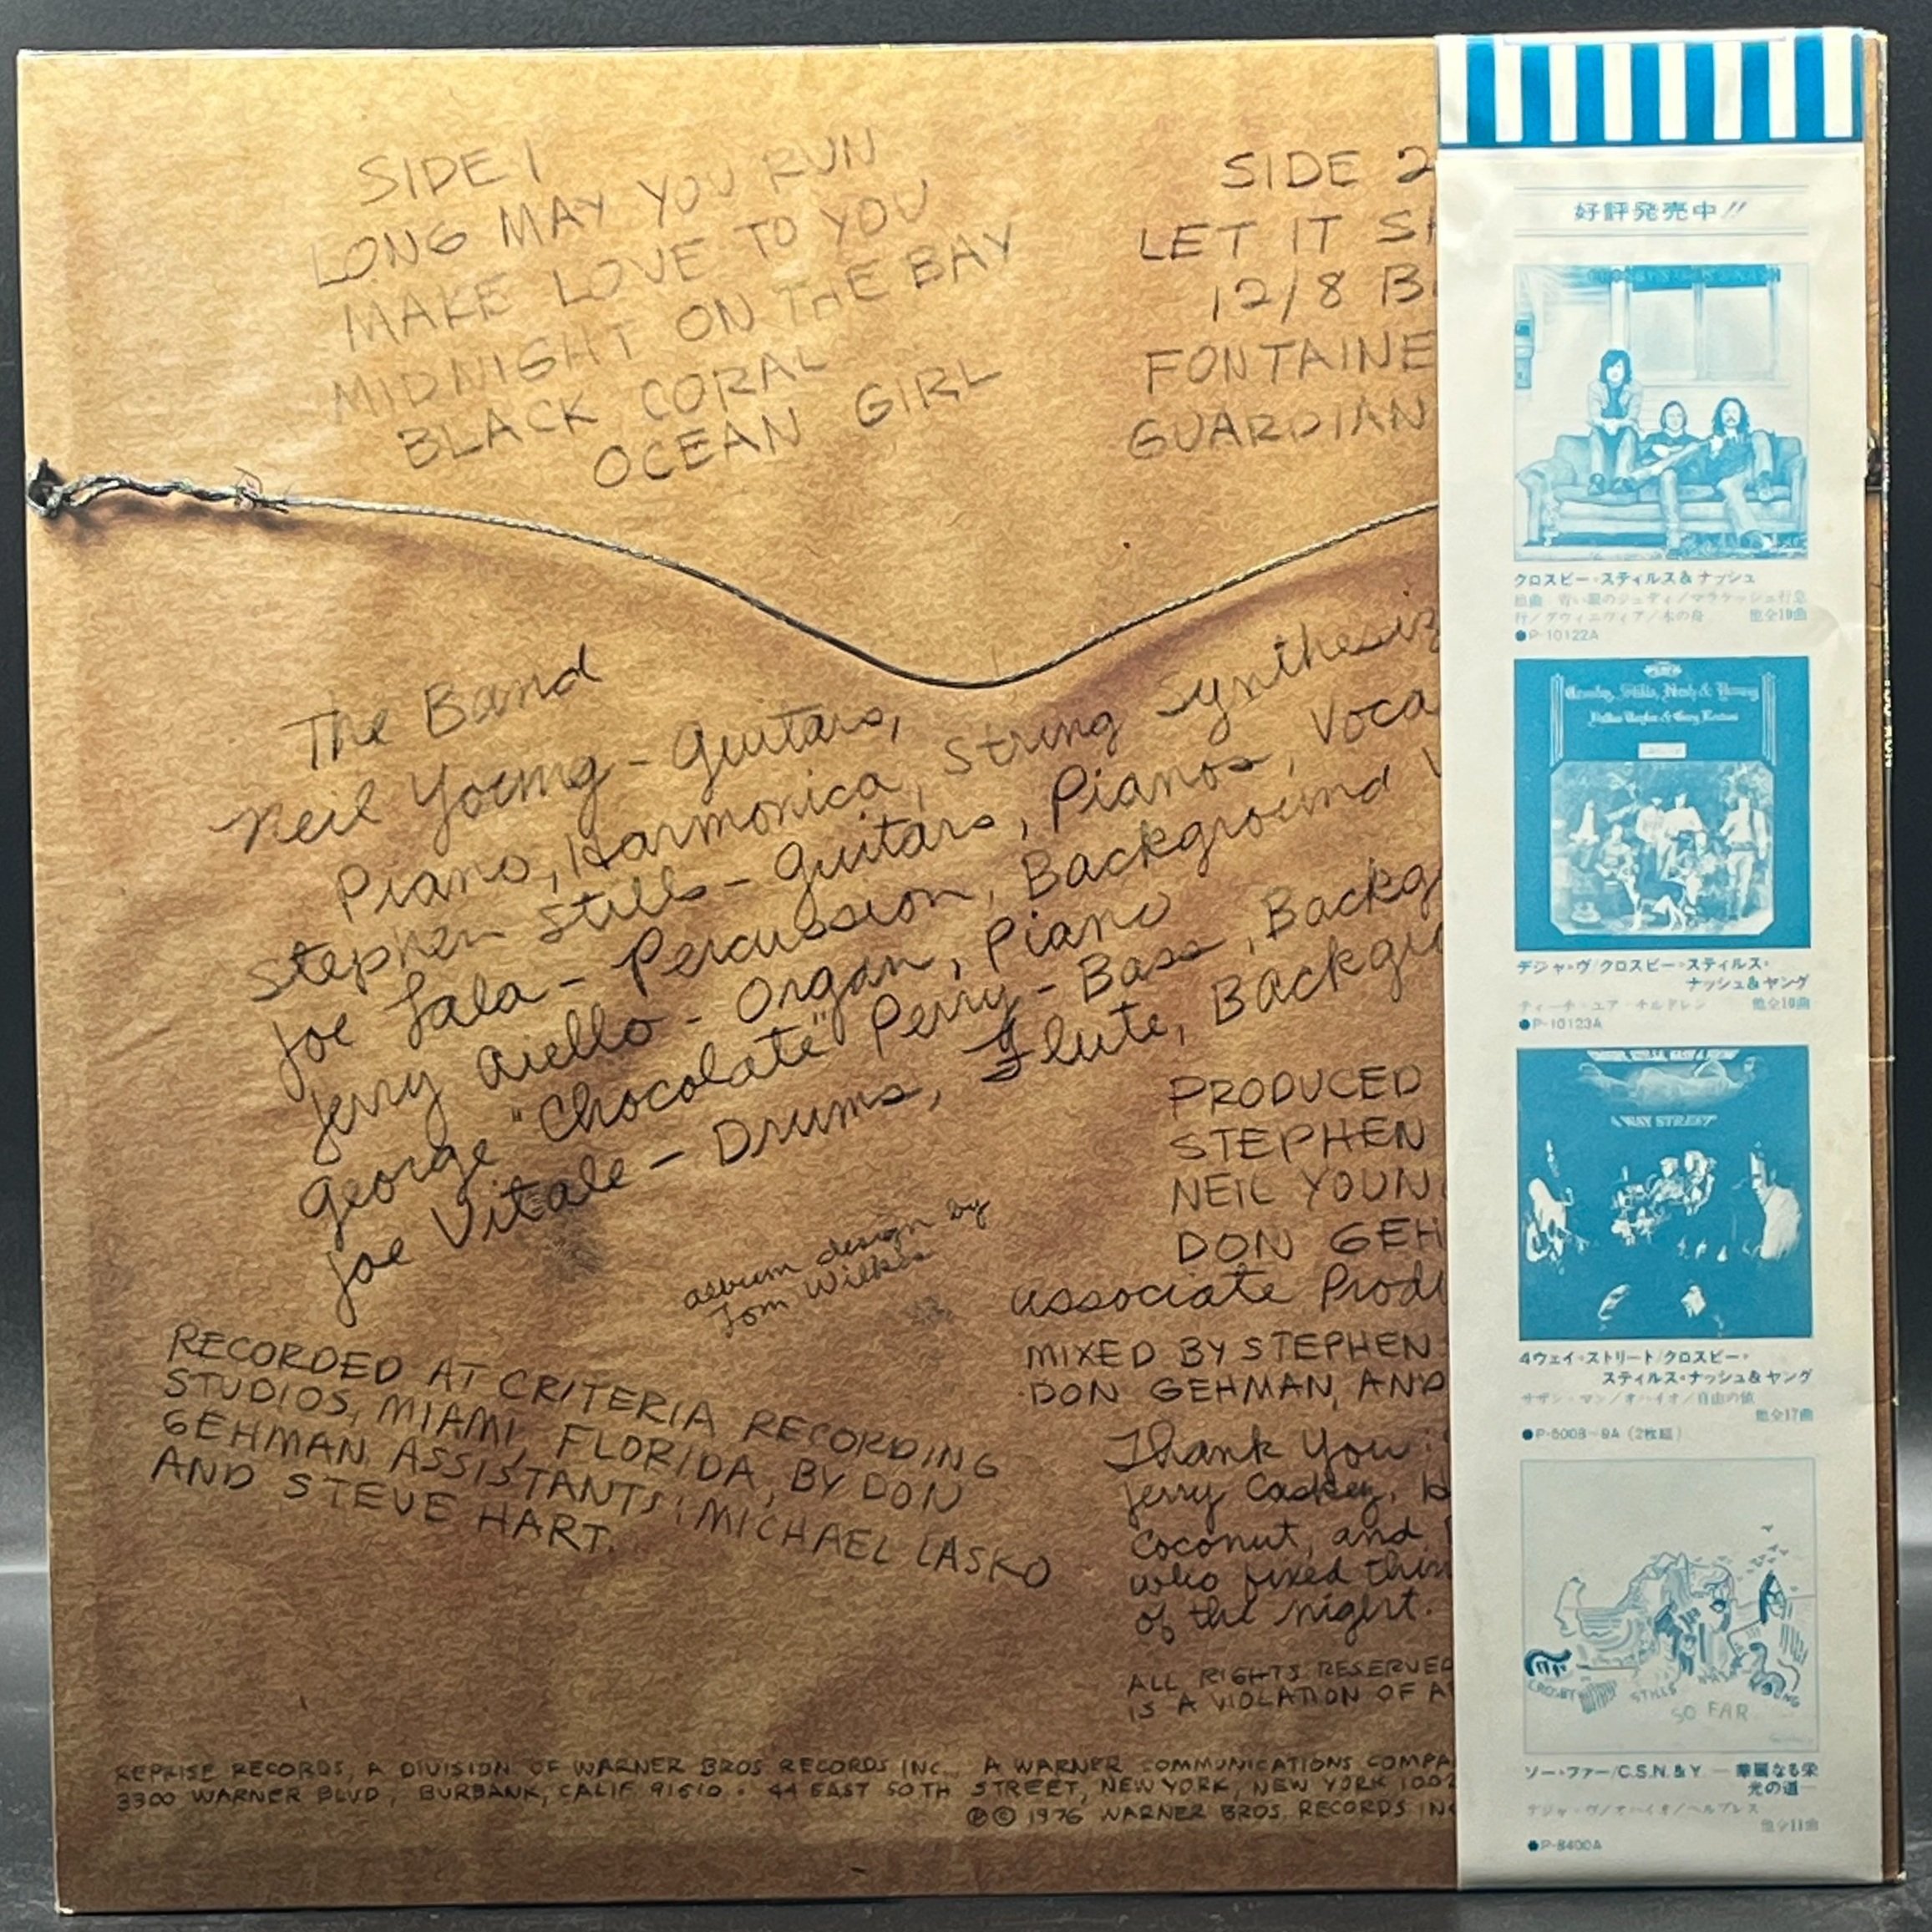 SIDE 1
LONG MAY YOU RUN
MAKE LOVE TO YOU
MIDNIGHT ON THE BAY
BLACK CORAL
OCEAN GIRL
SIDE 2
LET IT
12/8
FONTAINE
GUARDIAN
The Band
Neil Young - Guitars,
Piano, Harmonica, String
Stephen Stills - Guitars, Pianos,
Joe Lala - Percussion, Background
Jerry Aiello - Organ, Piano
George "Chocolate" Perry - Bass,
Joe Vitale - Drums, Flute,
album design by
Tom Wilkes
RECORDED AT CRITERIA RECORDING
STUDIOS, MIAMI, FLORIDA, BY DON
GEHMAN. ASSISTANTS: MICHAEL LASKO
AND STEVE HART.
PRODUCED
STEPHEN
NEIL
DON
associate
MIXED BY STEPHEN
DON GEHMAN, AND
Thank You
Jerry Caskey,
Coconut, and
who fixed
of the night.
ALL RIGHTS RESERVED
IS A VIOLATION OF
REPRISE RECORDS, A DIVISION OF WARNER BROS. RECORDS INC., A WARNER COMMUNICATIONS
3300 WARNER BLVD., BURBANK, CALIF. 91510 · 44 EAST 50TH STREET, NEW YORK, NEW YORK
℗© 1976 WARNER BROS. RECORDS
好評発売中!!
クロスビー・スティルス&ナッシュ
他全10曲
●P-10122A
Crosby, Stills, Nash & Young
デジャ・ヴ/クロスビー・スティルス・
ナッシュ&ヤング
ティーチ・ユア・チルドレン 他全10曲
●P-10123A
4 WAY STREET
4ウェイ・ストリート/クロスビー・
スティルス・ナッシュ&ヤング
サザン・マン/オハイオ/自由の値
他全17曲
(2枚組)
CROSBY STILLS NASH YOUNG
SO FAR
ソー・ファー/C.S.N.&Y. —華麗なる栄
光の道—
デジャ・ヴ/オハイオ/ヘルプレス
他全11曲
●P-8400A